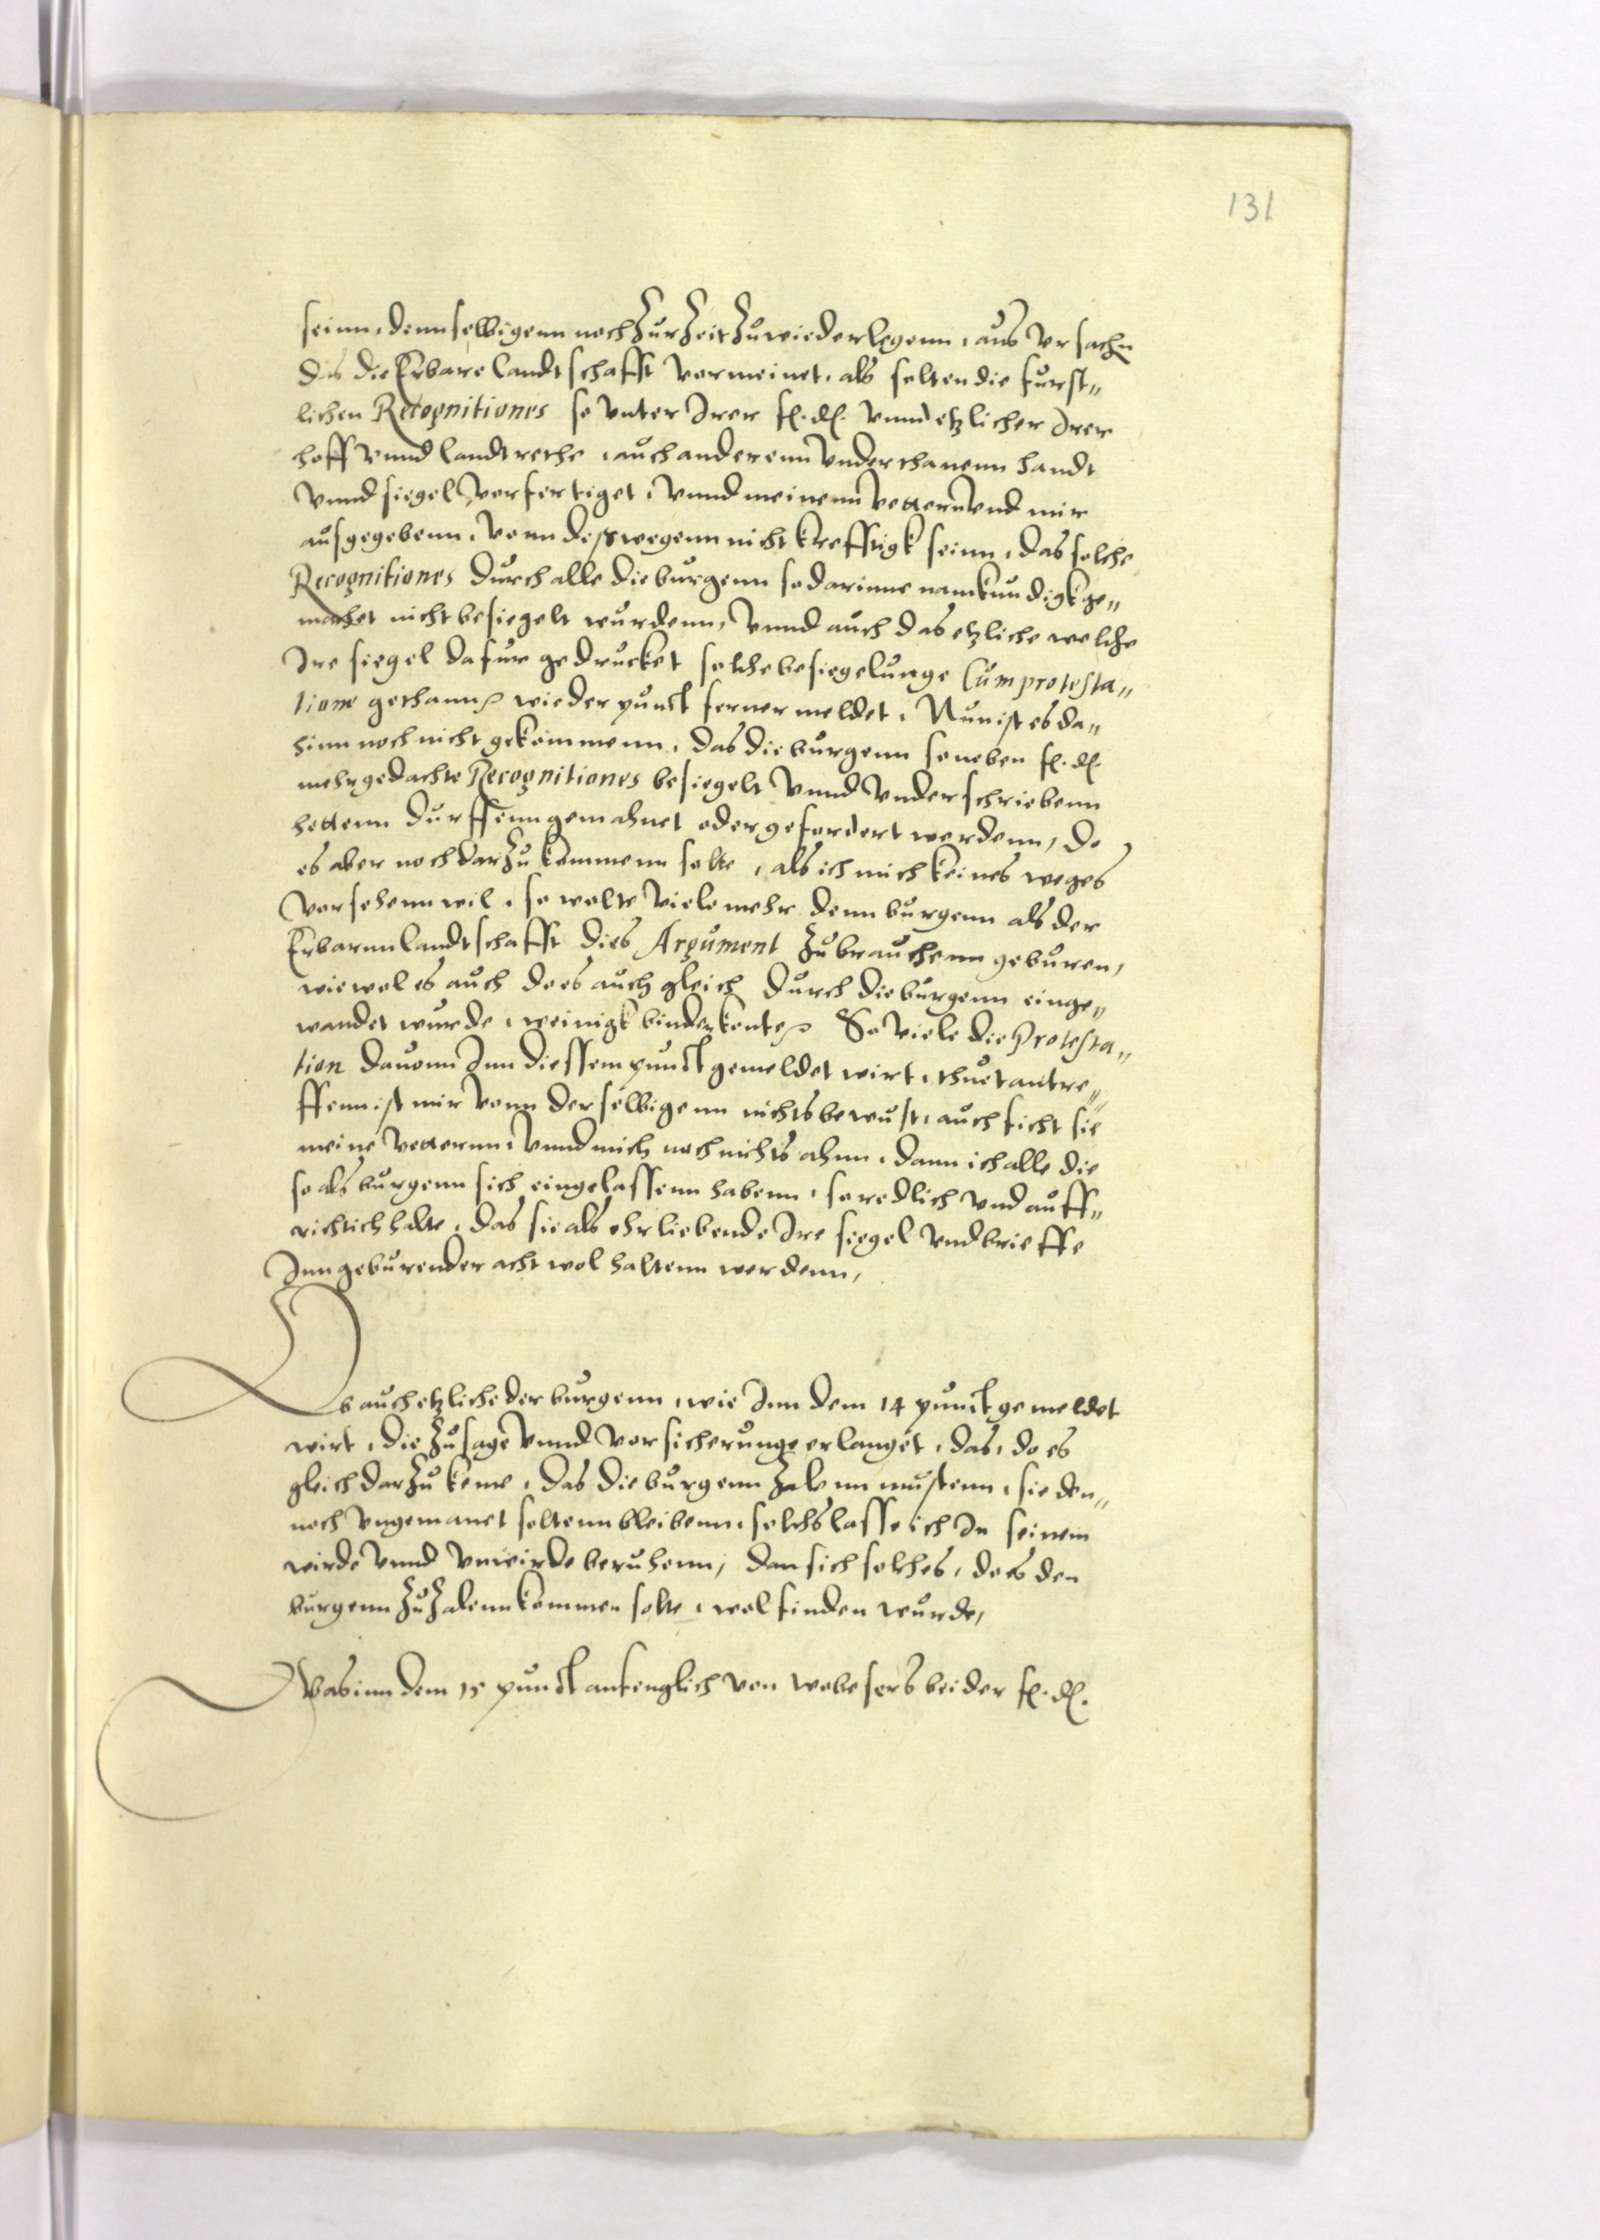 131
seinn, dennselbigenn noch Zur Zeit Zuwiederlegenn, aus Vrsachn
das die Erbare Landtschafft vermeinet, als solten die furst„
lichen Recognitiones so vnter Irer fl. dl. vnnd etzlicher Irer
hoff vnnd landtrethe, auch anderenn vnderthanenn handt
vnnd siegel verfertiget, vnnd meinenn vetternn vnd mir
ausgegebenn, venn deßwegenn nicht krefftigk seinn, das solche
Recognitiones durch alle die burgenn so darinne namkundigk ge„
machet nicht besiegelt wurdenn, vnnd auch das etzliche welche
Ire siegel dafur gedrucket solche besiegelunge Cum protesta„
tione gethann, wie der punct ferner meldet, Nun ist es da„
hinn noch nicht gekommenn, das die burgenn so neben fl. dl.
mehrgedachte Recognitiones besiegelt vnnd vnderschriebenn
hettenn durffenn gemahnet oder gefordert werdenn, do
es aber noch darzu kommenn solte, als ich mich keines weges
versehenn wil, so wolte viele mehr denn burgenn als der
Erbarnn landtschafft dies Argument Zu brauchenn geburen,
wiewol es auch do es auch gleich durch die burgenn einge„
wandet wurde, weinigk binden konte, So viele die Protesta„
tion dauonn Inn diessem punct gemeldet wirt, thuet antre„
ffenn ist mir vonn derselbigenn nichts bewust, auch ficht sie
meine vetternn, vnnd mich noch nichts ahnn, dann ich alle die
so als burgenn sich eingelassenn habenn, so redlich vnd auff„
richtich halte, das sie als ehrliebende Ire siegel vnd brieffe
Inn geburender acht wol haltenn werdenn,
Ob auch etzliche der burgenn, wie Inn dem 14 punct gemeldet
wirt, die Zusage vnnd versicherunge erlanget, das, do es
gleich darzu keme, das die burgenn Zalenn mustenn, sie den„
noch vngemanet soltenn bleibenn, solchs lasse ich In seinem
wirde vnnd vnwirde beruhenn, dan sich solches, do es den
burgenn Zu Zalenn kommen solte, wol finden wurde,
Was inn dem 15 punct anfenglich von wobesers bei der fl. dl.